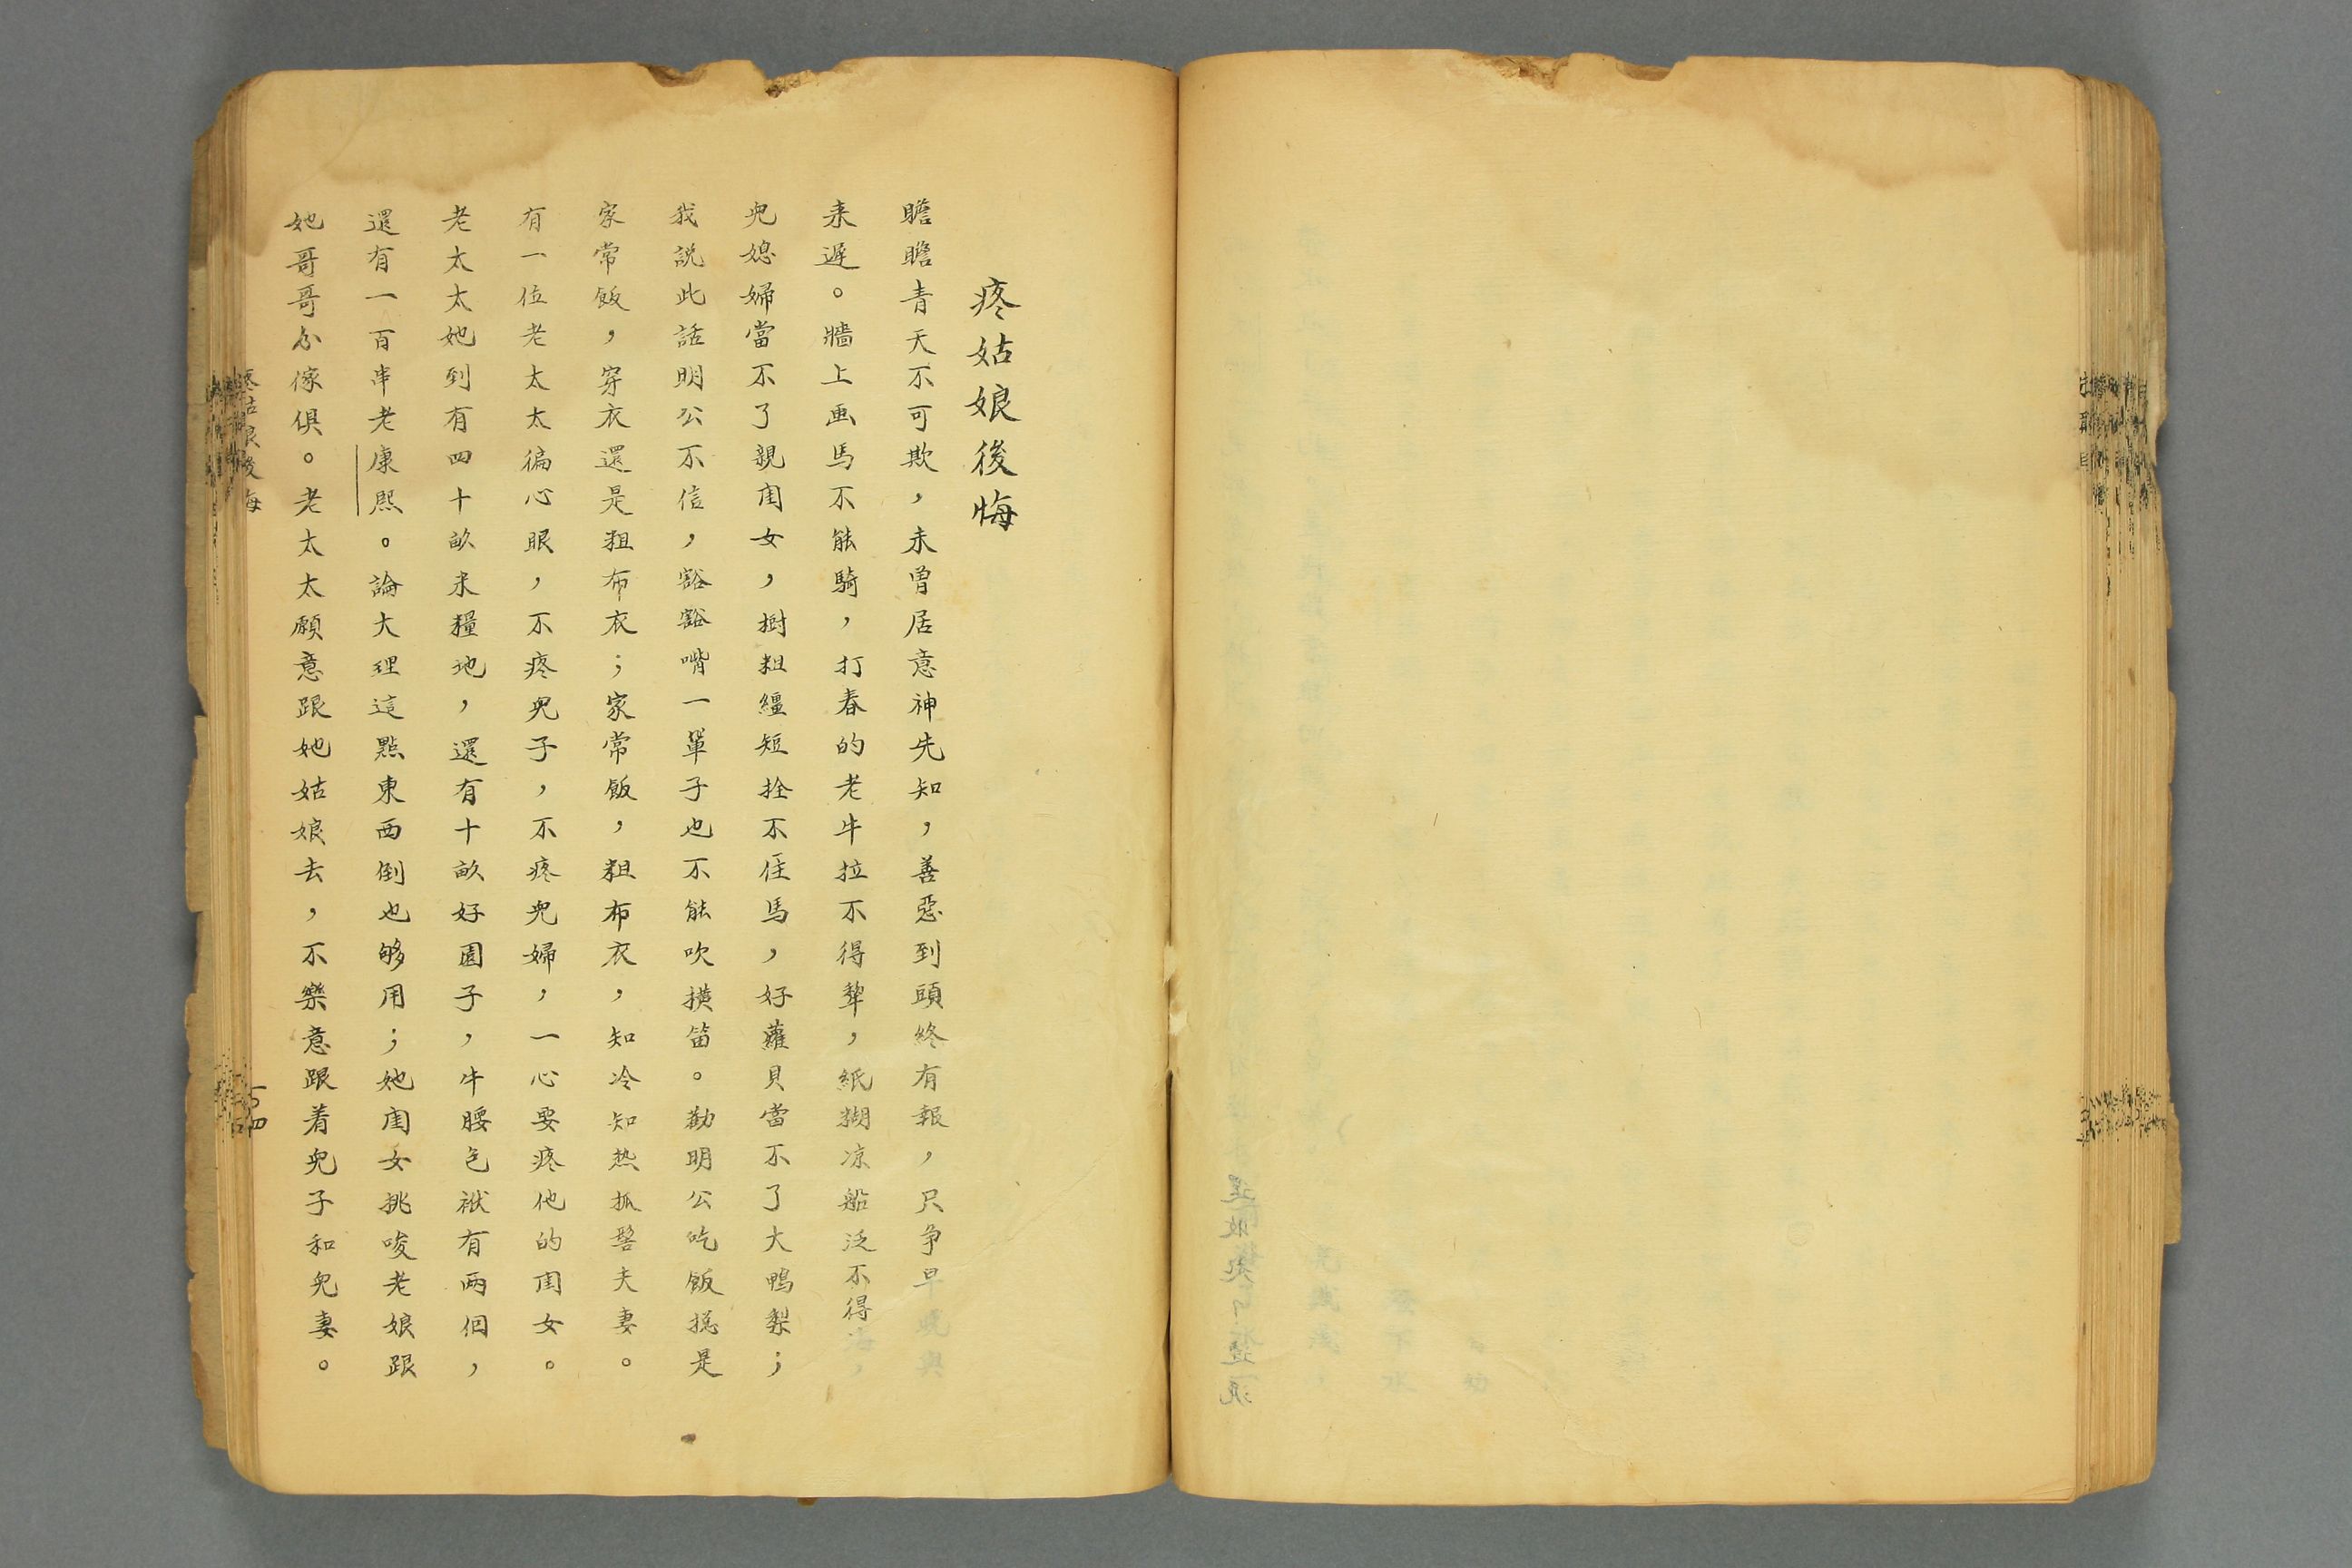 疼姑娘後悔
瞻瞻青天不可欺，未曾居意神先知，善惡到頭終有報，只争早晚與
来遲。牆上画馬不能騎，打春的老牛拉不得犂，紙糊凉船泛不得海，
兒媳婦當不了親閨女，樹粗繮短拴不住馬，好蘿貝當不了大鴨梨；
我説此話明公不信，豁豁嘴一輩子也不能吹横笛。勸明公吃飯搃是
家常飯，穿衣還是粗布衣；家常飯，粗布衣，知冷知热抓髻夫妻。
有一位老太太徧心眼，不疼兒子，不疼兒婦，一心要疼他的閨女。
老太太她到有四十畝来糧地，還有十畝好園子，牛腰包袱有兩個，
還有一百串老康熙。論大理這點東西倒也够用；她閨女挑唆老娘跟
她哥哥分傢俱。老太太願意跟她姑娘去，不樂意跟着兒子和兒妻。
疼姑娘後悔